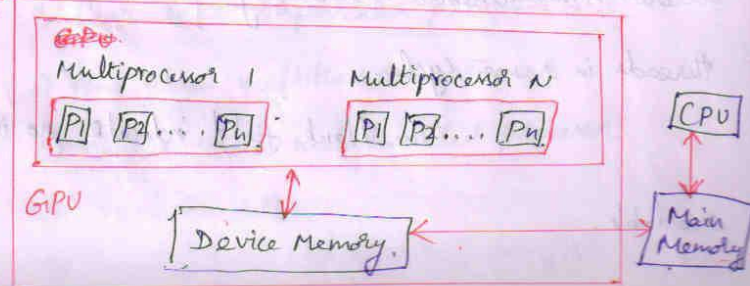 Multiprocessor 1 Multiprocessor N
P1 P2 .... Pn P1 P2 .... Pn
CPU
GPU
Device Memory
Main
Memory